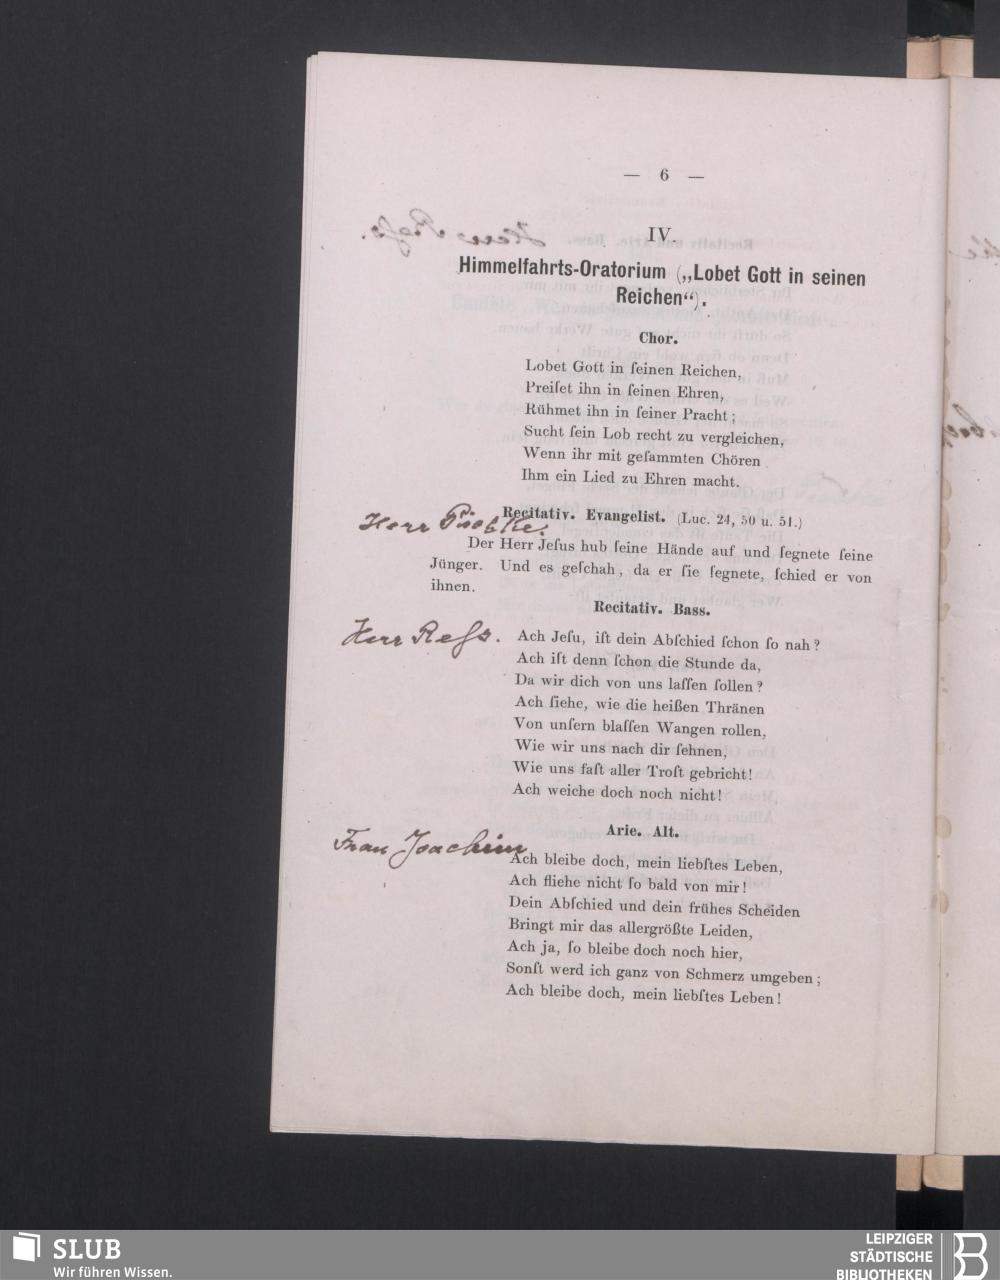 — 6 —
IV.
Himmelfahrts-Oratorium („Lobet Gott in seinen
Reichen“).
Chor.
Lobet Gott in ſeinen Reichen,
Preiſet ihn in ſeinen Ehren,
Rühmet ihn in ſeiner Pracht;
Sucht ſein Lob recht zu vergleichen,
Wenn ihr mit geſammten Chören
Ihm ein Lied zu Ehren macht.
Recitativ. Evangelist. (Luc. 24, 50 u. 51.)
Herr
Der Herr Jeſus hub ſeine Hände auf und ſegnete ſeine
Jünger. Und es geſchah, da er ſie ſegnete, ſchied er von
ihnen.
Recitativ. Bass.
Herr
Ach Jeſu, iſt dein Abſchied ſchon ſo nah?
Ach iſt denn ſchon die Stunde da,
Da wir dich von uns laſſen ſollen?
Ach ſiehe, wie die heißen Thränen
Von unſern blaſſen Wangen rollen,
Wie wir uns nach dir ſehnen,
Wie uns faſt aller Troſt gebricht!
Ach weiche doch noch nicht!
Arie. Alt.
Frau Joachim
Ach bleibe doch, mein liebſtes Leben,
Ach fliehe nicht ſo bald von mir!
Dein Abſchied und dein frühes Scheiden
Bringt mir das allergrößte Leiden,
Ach ja, ſo bleibe doch noch hier,
Sonſt werd ich ganz von Schmerz umgeben;
Ach bleibe doch, mein liebſtes Leben!
SLUB
Wir führen Wissen.
LEIPZIGER
STÄDTISCHE
BIBLIOTHEKEN